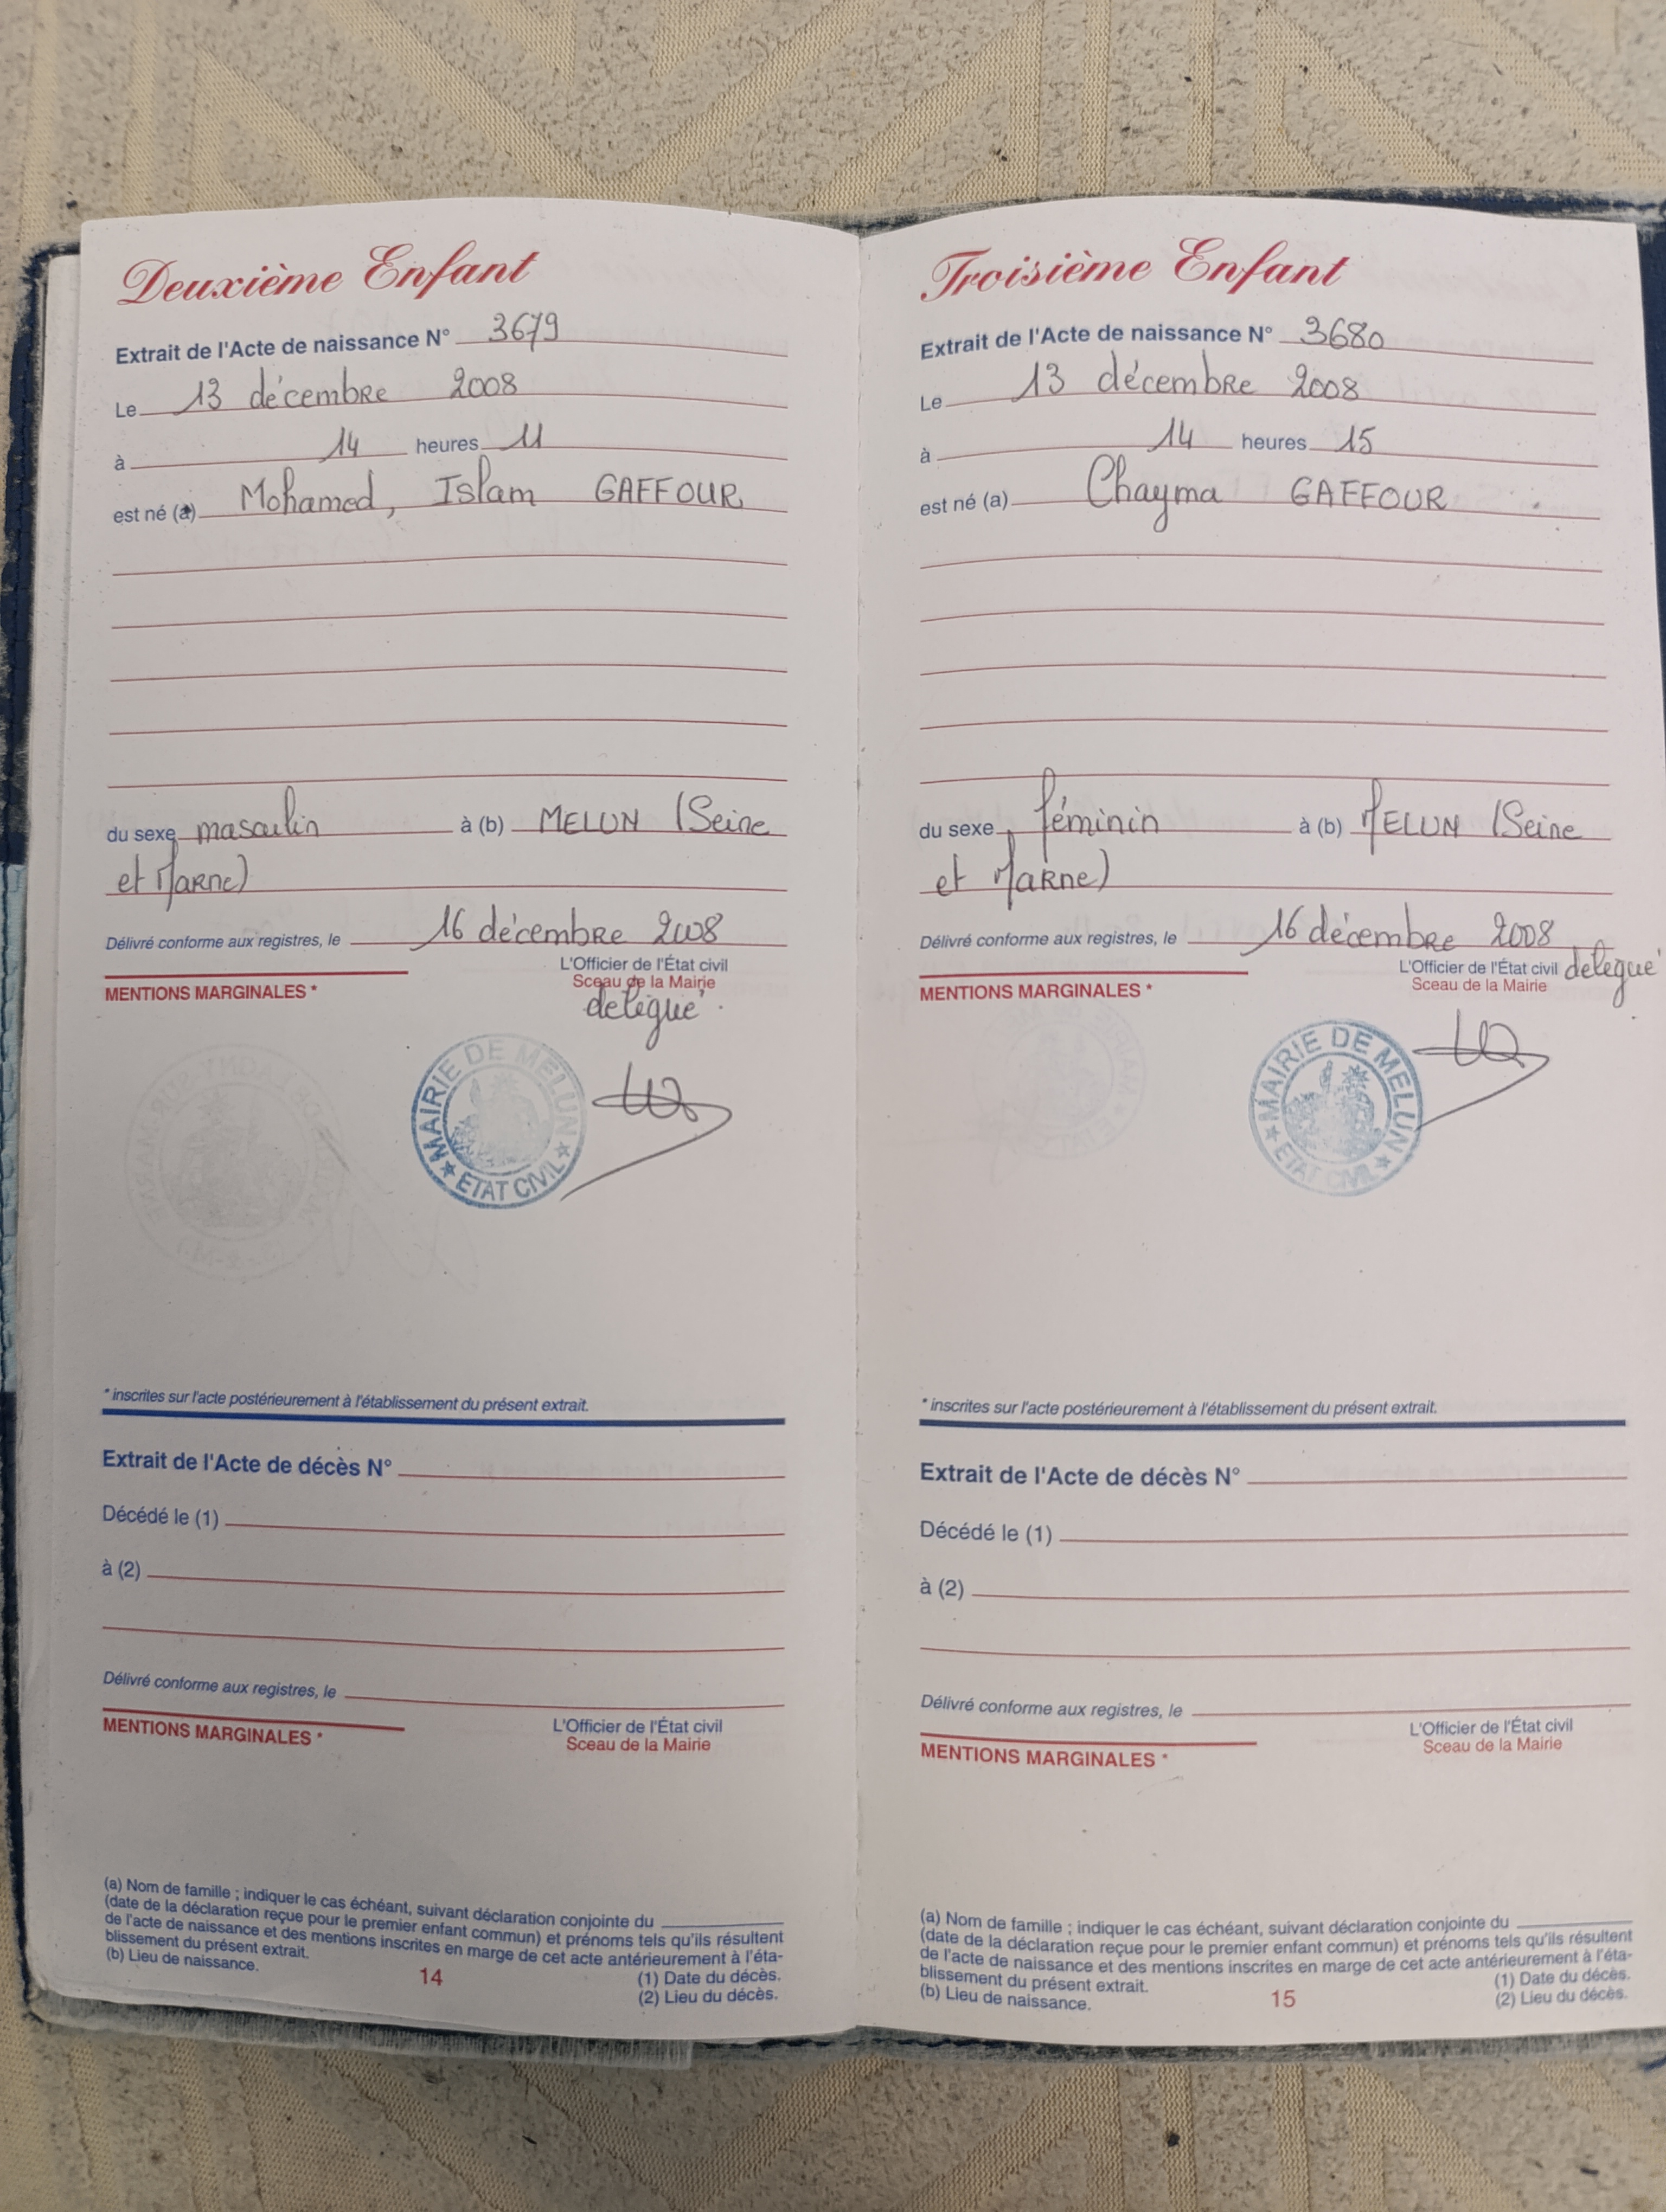 Deuxième Enfant
Extrait de l'Acte de naissance N° 3679
Le 13 décembre 2008
à 14 heures 11
est né (a) Mohamed, Islam GAFFOUR
du sexe masculin à (b) MELUN (Seine
et Marne)
Délivré conforme aux registres, le 16 décembre 2008
L'Officier de l'État civil
Sceau de la Mairie
MENTIONS MARGINALES *
délégué
MAIRIE DE MELUN
ETAT CIVIL
* inscrites sur l'acte postérieurement à l'établissement du présent extrait.
Extrait de l'Acte de décès N°
Décédé le (1)
à (2)
Délivré conforme aux registres, le
MENTIONS MARGINALES *
L'Officier de l'État civil
Sceau de la Mairie
(a) Nom de famille ; indiquer le cas échéant, suivant déclaration conjointe du
(date de la déclaration reçue pour le premier enfant commun) et prénoms tels qu'ils résultent
de l'acte de naissance et des mentions inscrites en marge de cet acte antérieurement à l'éta-
blissement du présent extrait.
(b) Lieu de naissance.
(1) Date du décès.
(2) Lieu du décès.
14
Troisième Enfant
Extrait de l'Acte de naissance N° 3680
Le 13 décembre 2008
à 14 heures 15
est né (a) Chayma GAFFOUR
du sexe féminin à (b) MELUN (Seine
et Marne)
Délivré conforme aux registres, le 16 décembre 2008
L'Officier de l'État civil délégué
Sceau de la Mairie
MENTIONS MARGINALES *
MAIRIE DE MELUN
ETAT CIVIL
* inscrites sur l'acte postérieurement à l'établissement du présent extrait.
Extrait de l'Acte de décès N°
Décédé le (1)
à (2)
Délivré conforme aux registres, le
MENTIONS MARGINALES *
L'Officier de l'État civil
Sceau de la Mairie
(a) Nom de famille ; indiquer le cas échéant, suivant déclaration conjointe du
(date de la déclaration reçue pour le premier enfant commun) et prénoms tels qu'ils résultent
de l'acte de naissance et des mentions inscrites en marge de cet acte antérieurement à l'éta-
blissement du présent extrait.
(b) Lieu de naissance.
(1) Date du décès.
(2) Lieu du décès.
15